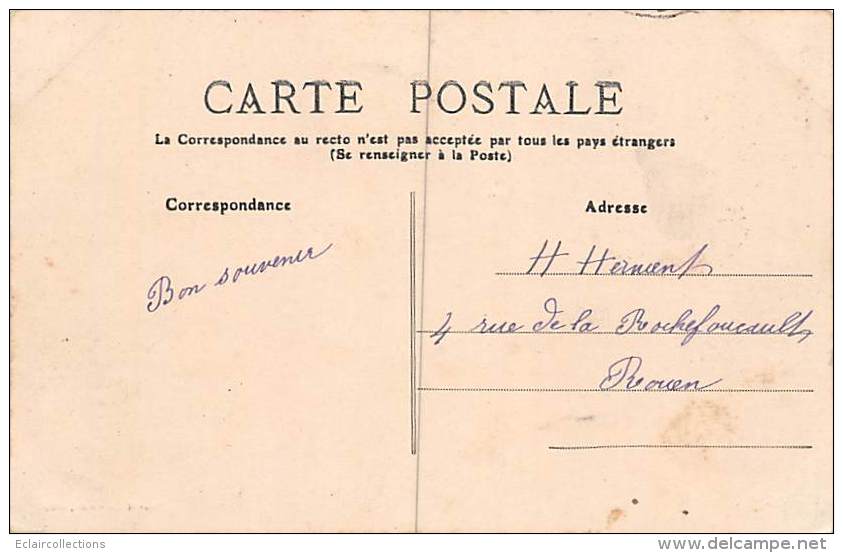 CARTE POSTALE
La Correspondance au recto n'est pas acceptée par tous les pays étrangers
(Se renseigner à la Poste)
Correspondance
Adresse
Bon souvenir
H Herment
4 rue de la Rochefoucault
Rouen
Eclaircollections
© delcampe.net